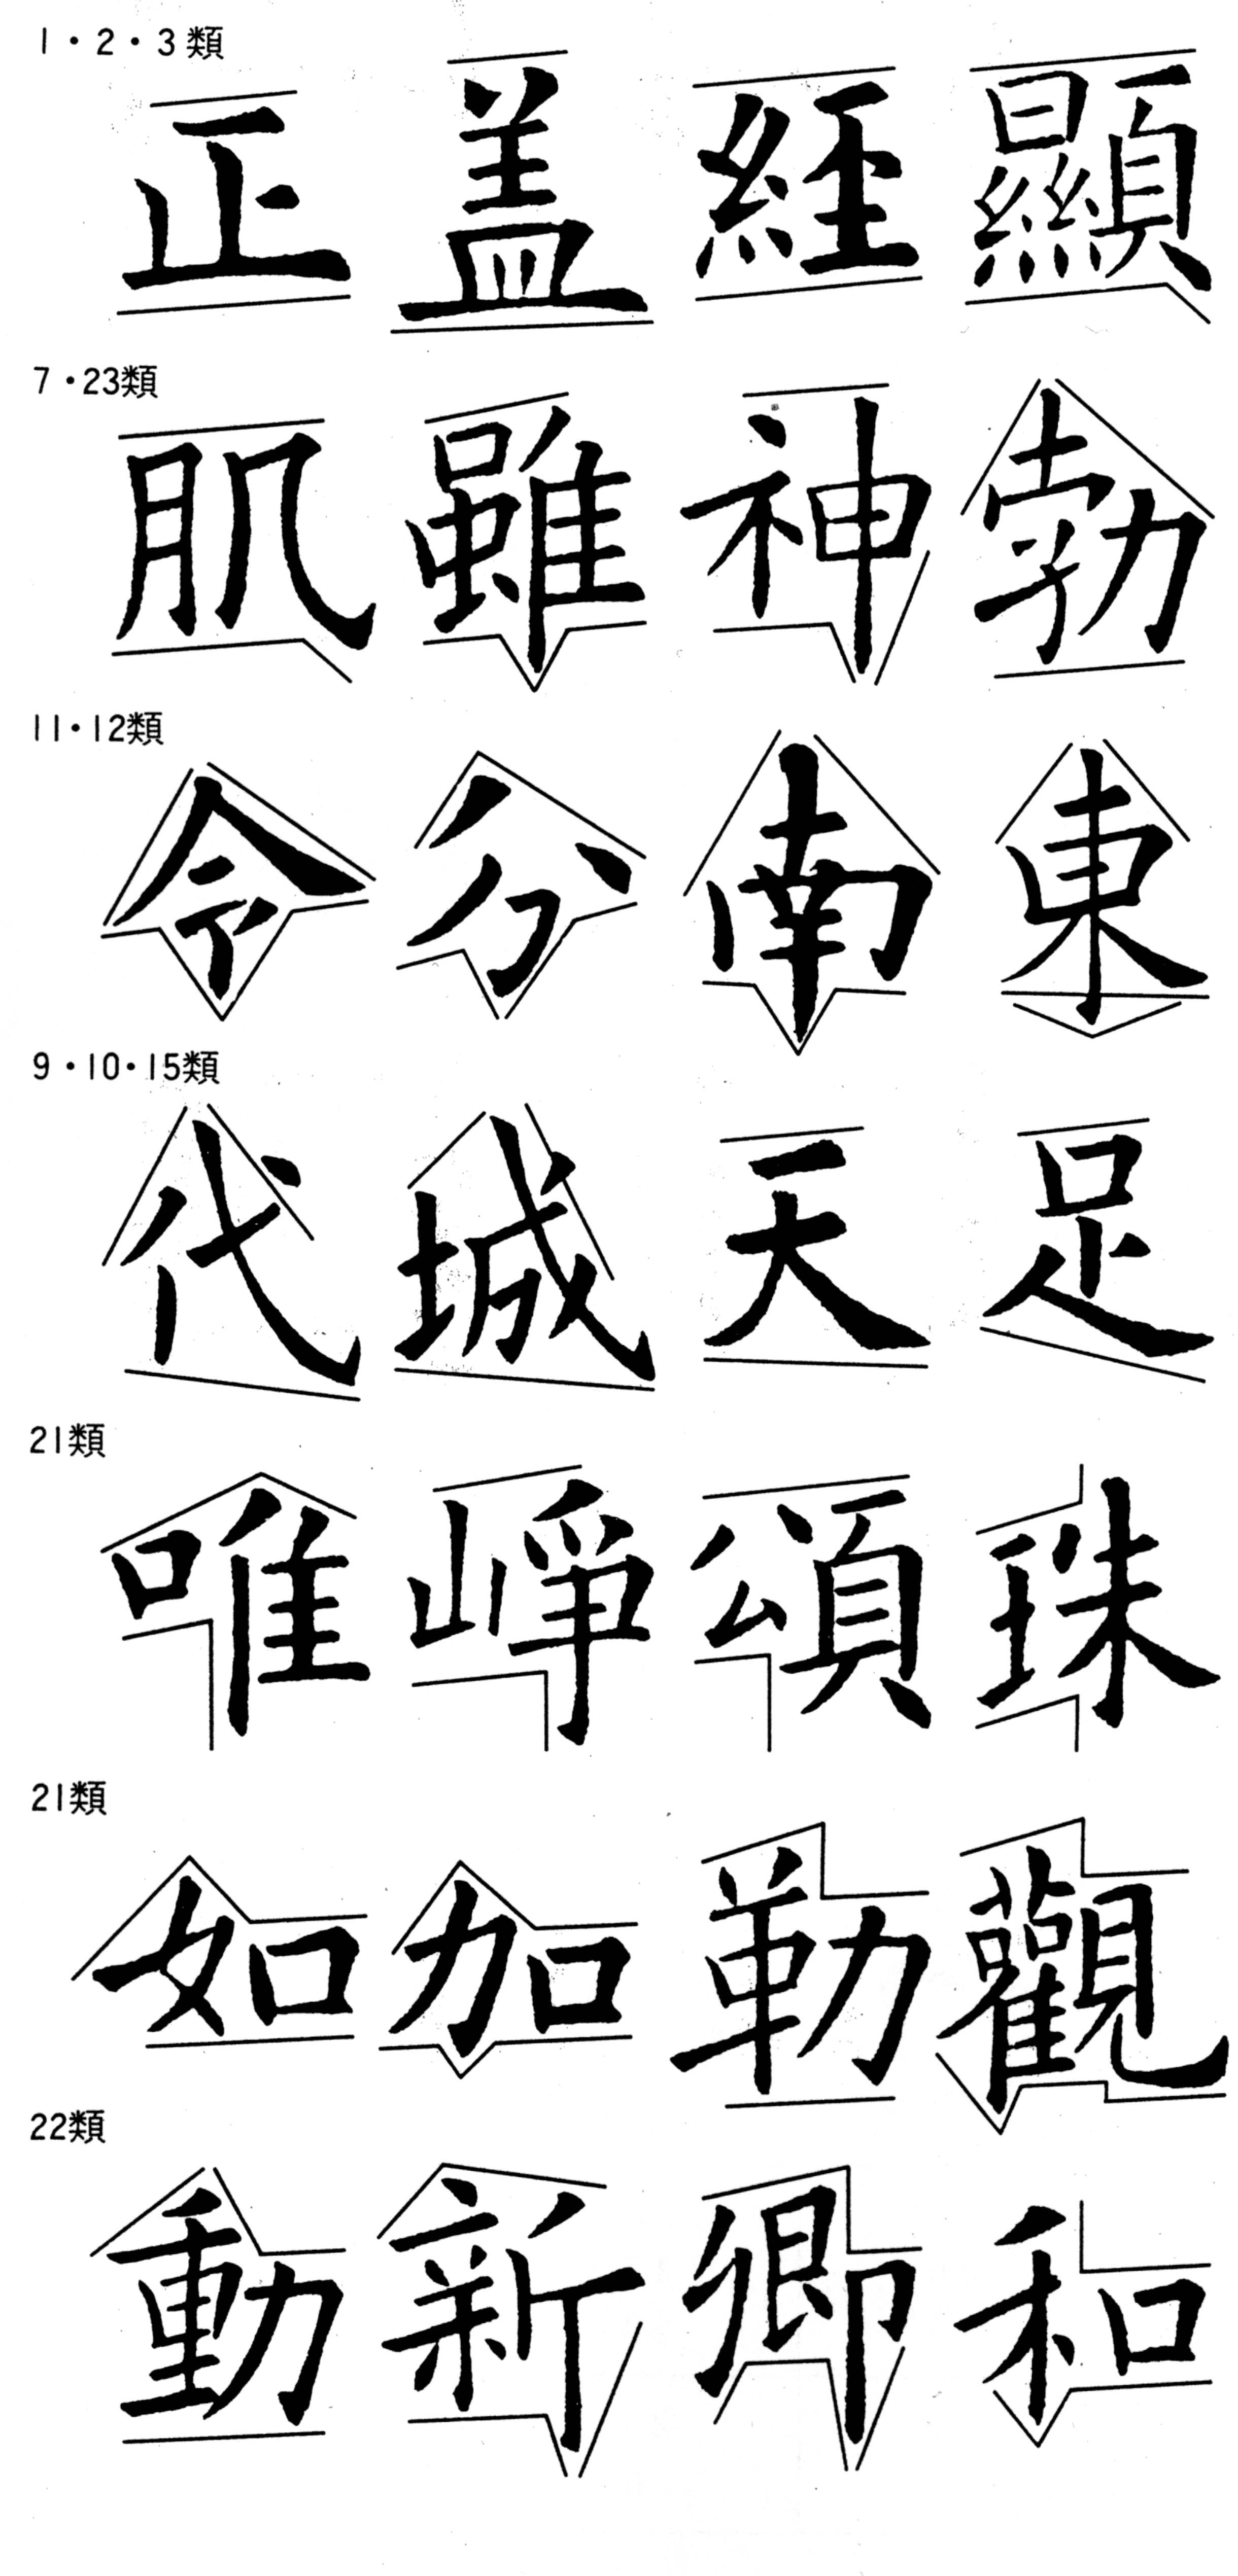 1・2・3類
正盖経顯
7・23類
肌雖神勃
11・12類
令分南東
9・10・15類
代城天足
21類
唯崢頌珠
21類
如加勒觀
22類
動新卿和